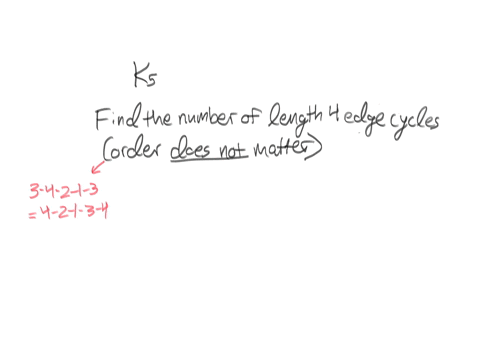 K5
Find the number of length 4 edge cycles
(order does not matter)
3-4-2-1-3
= 4-2-1-3-4